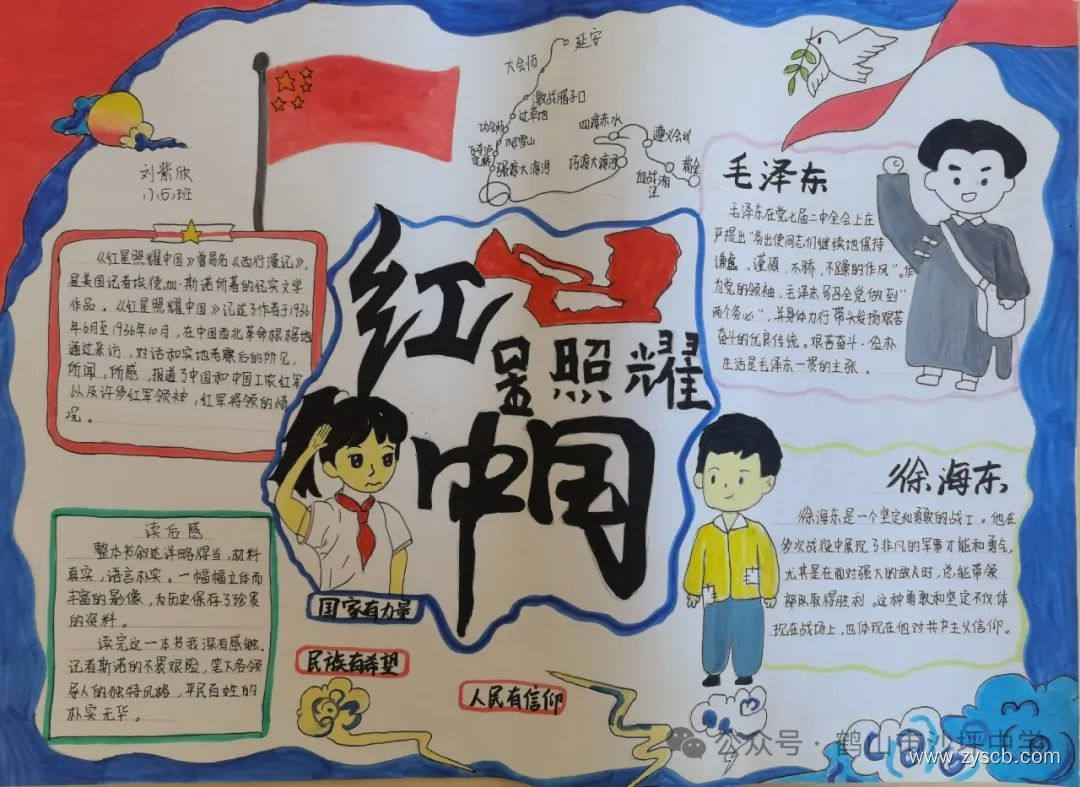 延安
大会师
激战腊子口
过草地
爬雪山
强度大渡河
四度赤水
遵义会议
巧渡大渡河
血战湘江
瑞金
刘紫欣
《红星照耀中国》曾易名《西行漫记》,
是美国记者埃德加·斯诺所著的纪实文学
作品。《红星照耀中国》记述了作者于1936
年6月至1936年10月,在中国西北革命根据地
通过采访,对话和实地考察后的所见,
所闻,所感,报道了中国和中国工农红军
以及许多红军领袖,红军将领的情
况。
毛泽东
毛泽东在党七届二中全会上庄
严提出“务必使同志们继续地保持
谦虚,谨慎,不骄,不躁的作风”。作
为党的领袖,毛泽东号召全党做到“
两个务必”,并身体力行带头发扬艰苦
奋斗的优良传统。艰苦奋斗·俭朴
生活是毛泽东一贯的主张。
红星照耀
中国
徐海东
徐海东是一个坚定和勇敢的战士。他在
多次战役中展现了非凡的军事才能和勇气,
尤其是在面对强大的敌人时,总能带领
部队取得胜利。这种勇敢和坚定不仅体
现在战场上,也体现在他对共产主义信仰。
读后感
整本书叙述详略得当,材料
真实,语言朴实。一幅幅立体而
丰富的影像,为历史保存了珍贵
的资料。
读完这一本书我深有感触,
记者斯诺的不畏艰险,笔下各领
导人的独特风格,平民百姓的
朴实无华。
国家有力量
民族有希望
人民有信仰
公众号·鹤山市沙坪中学
www.zyscb.com